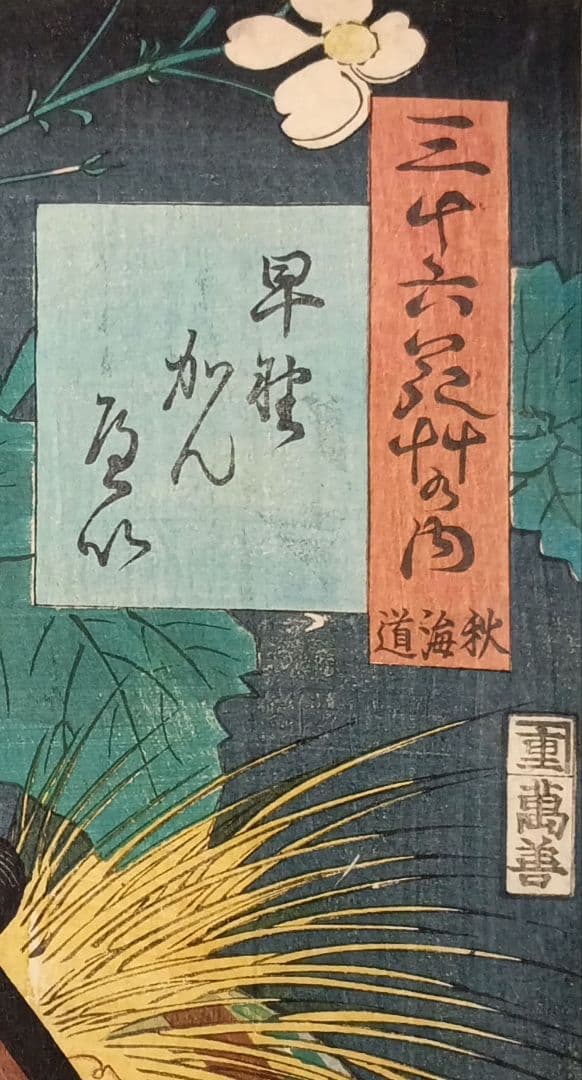 三十六花艸の内
秋海道
早野
かん
へい
重萬善